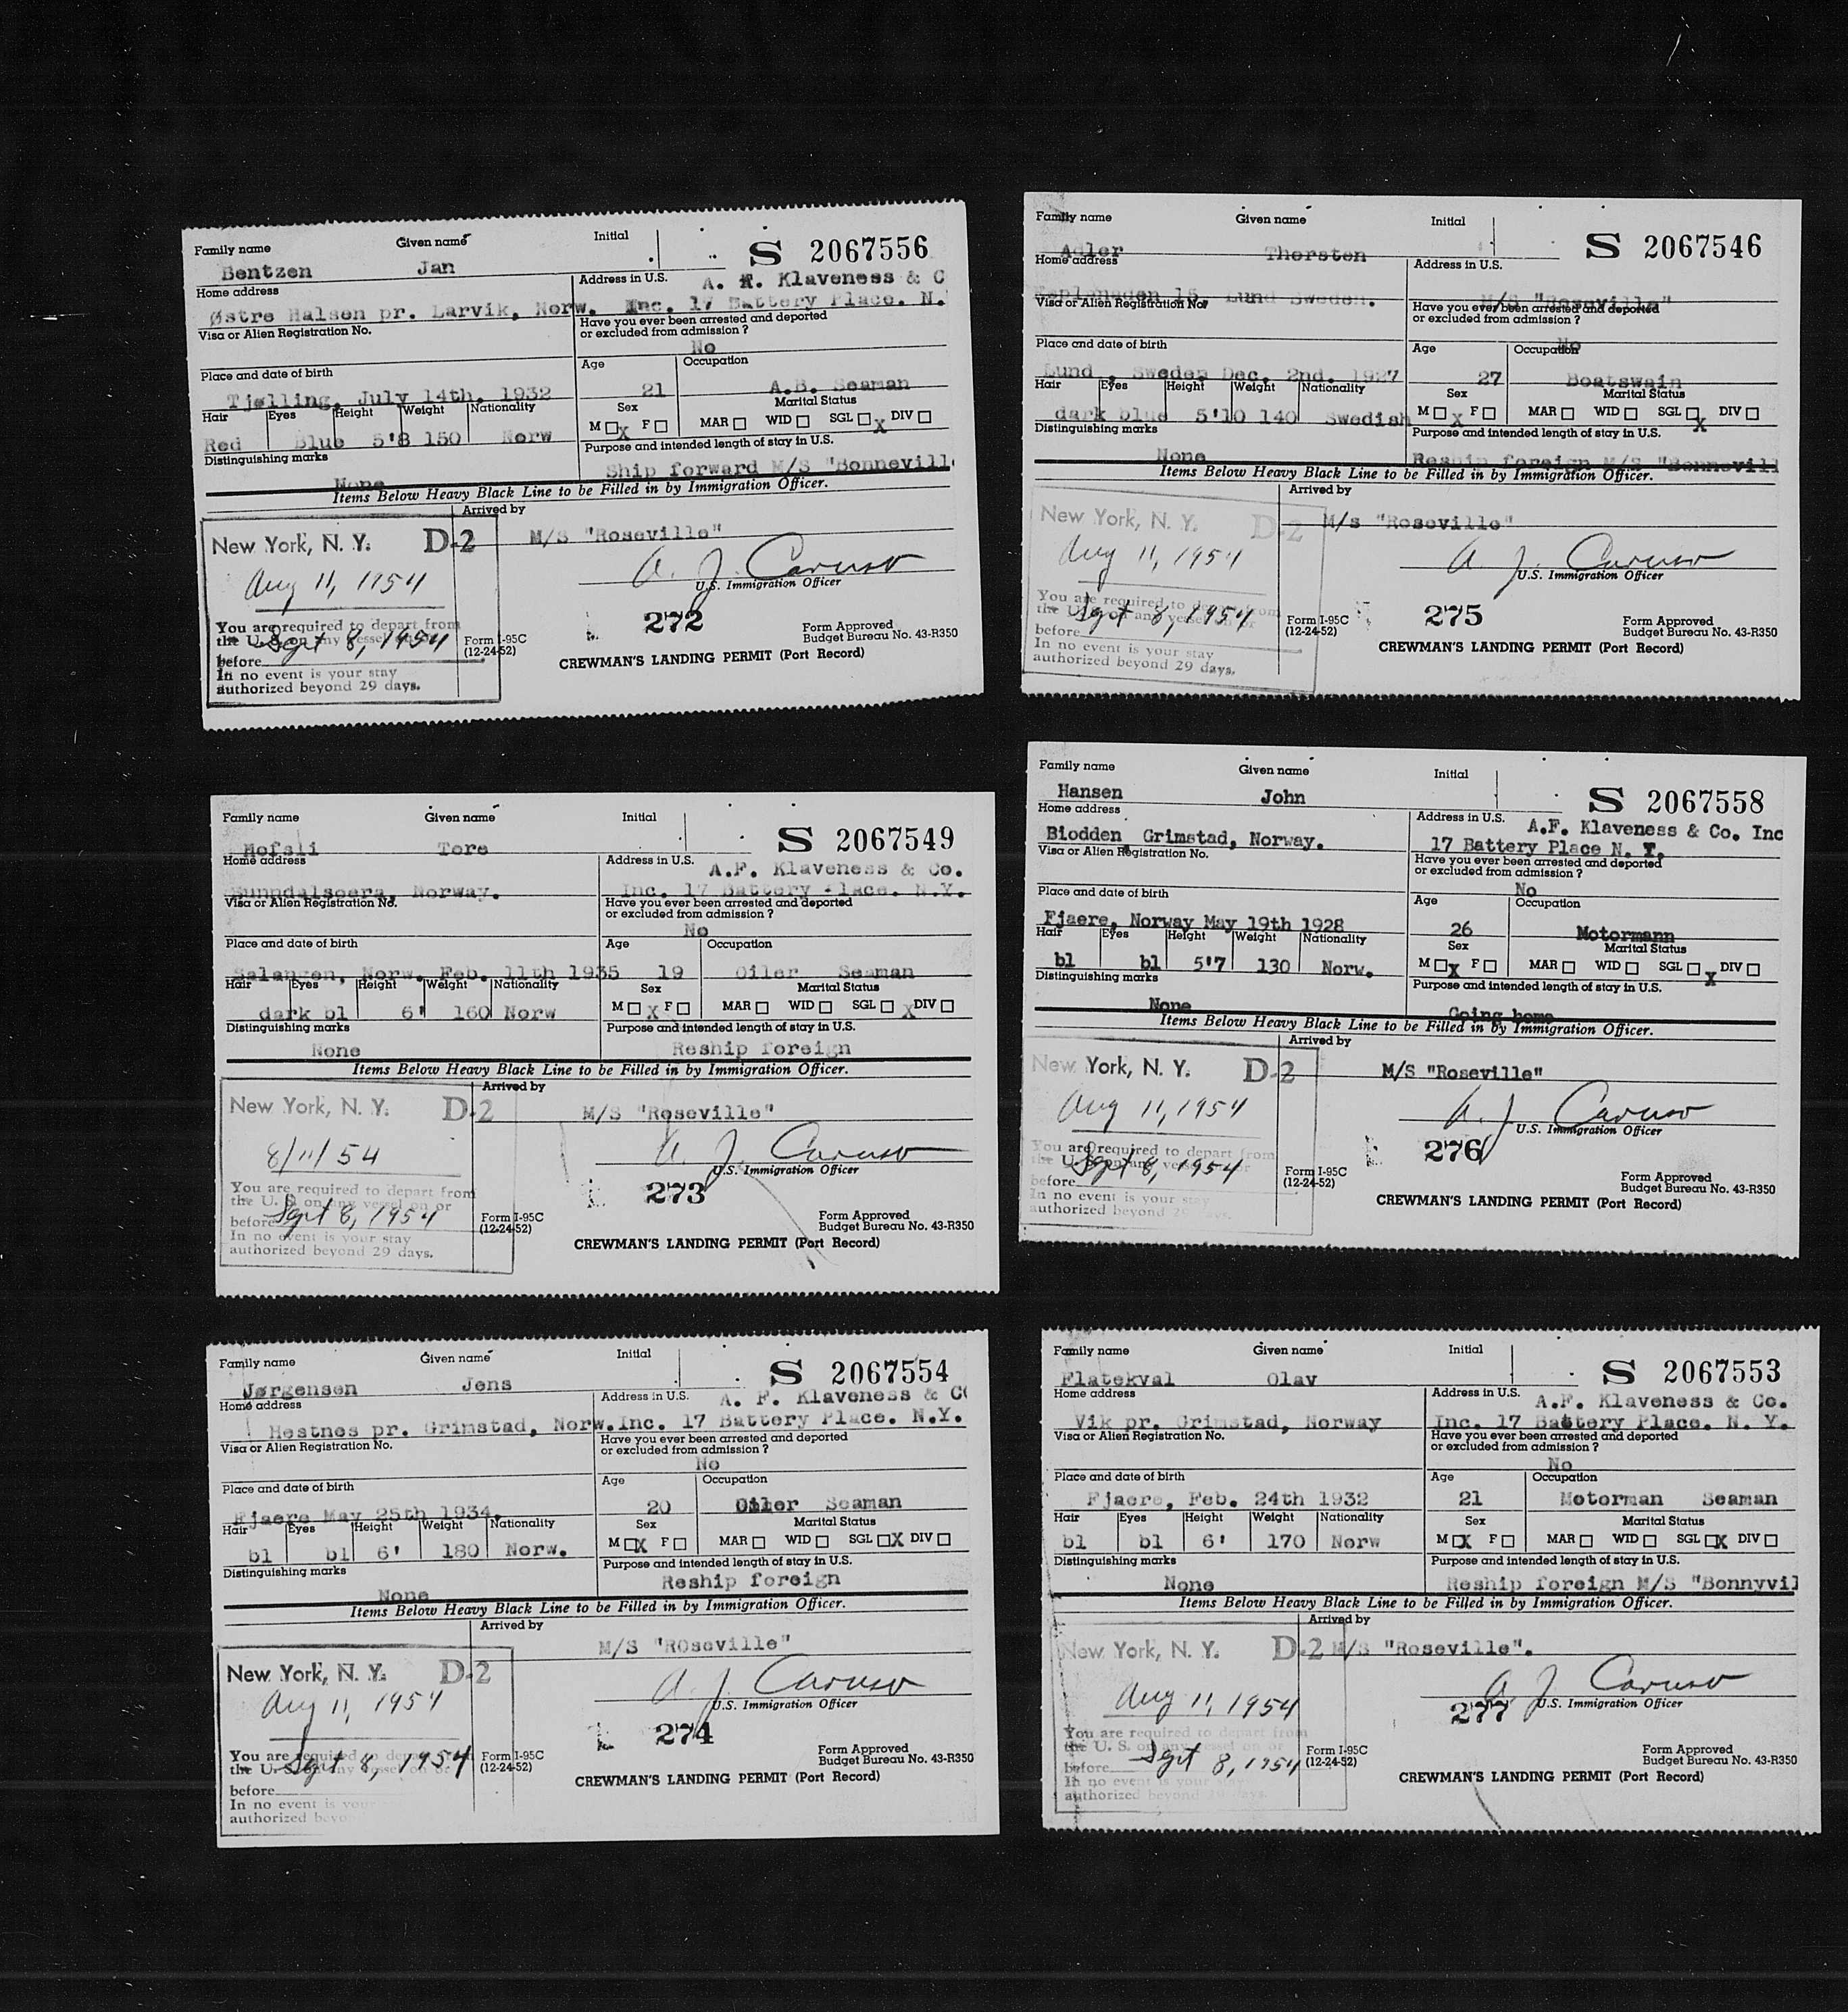 Family name Given name Initial
S 2067556
Bentzen Jan
Home address Address in U.S.
A. F. Klaveness & C
Østre Halsen pr. Larvik, Norw. Inc. 17 Battery Place. N.
Visa or Alien Registration No. Have you ever been arrested and deported
or excluded from admission ?
No
Place and date of birth Age Occupation
Tjølling, July 14th, 1932 21 A.B. Seaman
Hair Eyes Height Weight Nationality Sex Marital Status
M X F MAR WID SGL X DIV
Red Blue 5'8 150 Norw
Distinguishing marks Purpose and intended length of stay in U.S.
None Ship forward M/S "Bonnevill
Items Below Heavy Black Line to be Filled in by Immigration Officer.
Arrived by
New York, N. Y. D-2 M/S "Roseville"
Aug 11, 1954 A. J. Caruso
U.S. Immigration Officer
You are required to depart from
the U.S. on any vessel on or
before Sept 8, 1954
In no event is your stay
authorized beyond 29 days.
272
Form I-95C
(12-24-52)
Form Approved
Budget Bureau No. 43-R350
CREWMAN'S LANDING PERMIT (Port Record)
Family name Given name Initial
S 2067546
Adler Thorsten
Home address Address in U.S.
15, Lund Sweden. M/S "Roseville"
Visa or Alien Registration No. Have you ever been arrested and deported
or excluded from admission ?
No
Place and date of birth Age Occupation
Lund , Sweden Dec. 2nd. 1927 27 Boatswain
Hair Eyes Height Weight Nationality Sex Marital Status
M X F MAR WID SGL X DIV
dark blue 5'10 140 Swedish
Distinguishing marks Purpose and intended length of stay in U.S.
None Reship foreign M/S "Bonnevill
Items Below Heavy Black Line to be Filled in by Immigration Officer.
Arrived by
New York, N. Y. D-2 M/s "Roseville"
Aug 11, 1954 A. J. Caruso
U.S. Immigration Officer
You are required to depart from
the U.S. on any vessel on or
before Sept 8, 1954
In no event is your stay
authorized beyond 29 days.
275
Form I-95C
(12-24-52)
Form Approved
Budget Bureau No. 43-R350
CREWMAN'S LANDING PERMIT (Port Record)
Family name Given name Initial
S 2067549
Hofsli Tore
Home address Address in U.S.
A.F. Klaveness & Co.
Sunndalsoera, Norway. Inc. 17 Battery Place. N.Y.
Visa or Alien Registration No. Have you ever been arrested and deported
or excluded from admission ?
No
Place and date of birth Age Occupation
Salangen, Norw. Feb. 11th 1935 19 Oiler Seaman
Hair Eyes Height Weight Nationality Sex Marital Status
M X F MAR WID SGL X DIV
dark bl 6' 160 Norw
Distinguishing marks Purpose and intended length of stay in U.S.
None Reship foreign
Items Below Heavy Black Line to be Filled in by Immigration Officer.
Arrived by
New York, N. Y. D-2 M/S "Roseville"
8/11/54 A. J. Caruso
U.S. Immigration Officer
You are required to depart from
the U. S. on any vessel on or
before Sept 8, 1954
In no event is your stay
authorized beyond 29 days.
273
Form I-95C
(12-24-52)
Form Approved
Budget Bureau No. 43-R350
CREWMAN'S LANDING PERMIT (Port Record)
Family name Given name Initial
S 2067558
Hansen John
Home address Address in U.S.
A.F. Klaveness & Co. Inc
Biodden Grimstad, Norway. 17 Battery Place N. Y.
Visa or Alien Registration No. Have you ever been arrested and deported
or excluded from admission ?
No
Place and date of birth Age Occupation
Fjaere, Norway May 19th 1928 26 Motormann
Hair Eyes Height Weight Nationality Sex Marital Status
M X F MAR WID SGL X DIV
bl bl 5'7 130 Norw.
Distinguishing marks Purpose and intended length of stay in U.S.
None Going home
Items Below Heavy Black Line to be Filled in by Immigration Officer.
Arrived by
New York, N. Y. D-2 M/S "Roseville"
Aug 11, 1954 A. J. Caruso
U.S. Immigration Officer
You are required to depart from
the U.S. on any vessel on or
before Sept 8, 1954
In no event is your stay
authorized beyond 29 days.
276
Form I-95C
(12-24-52)
Form Approved
Budget Bureau No. 43-R350
CREWMAN'S LANDING PERMIT (Port Record)
Family name Given name Initial
S 2067554
Jørgensen Jens
Home address Address in U.S.
A. F. Klaveness & Co
Hestnes pr. Grimstad, Norw. Inc. 17 Battery Place. N.Y.
Visa or Alien Registration No. Have you ever been arrested and deported
or excluded from admission ?
No
Place and date of birth Age Occupation
Fjaere May 25th 1934. 20 Oiler Seaman
Hair Eyes Height Weight Nationality Sex Marital Status
M X F MAR WID SGL X DIV
bl bl 6' 180 Norw.
Distinguishing marks Purpose and intended length of stay in U.S.
None Reship foreign
Items Below Heavy Black Line to be Filled in by Immigration Officer.
Arrived by
New York, N. Y. D-2 M/S "ROseville"
Aug 11, 1954 A. J. Caruso
U.S. Immigration Officer
You are required to depart from
the U.S. on any vessel on or
before Sept 8, 1954
In no event is your
authorized beyo
274
Form I-95C
(12-24-52)
Form Approved
Budget Bureau No. 43-R350
CREWMAN'S LANDING PERMIT (Port Record)
Family name Given name Initial
S 2067553
Flatekval Olav
Home address Address in U.S.
A.F. Klaveness & Co.
Vik pr. Grimstad, Norway Inc. 17 Battery Place. N. Y.
Visa or Alien Registration No. Have you ever been arrested and deported
or excluded from admission ?
No
Place and date of birth Age Occupation
Fjaere, Feb. 24th 1932 21 Motorman Seaman
Hair Eyes Height Weight Nationality Sex Marital Status
M X F MAR WID SGL X DIV
bl bl 6' 170 Norw
Distinguishing marks Purpose and intended length of stay in U.S.
None Reship foreign M/S "Bonnyvil
Items Below Heavy Black Line to be Filled in by Immigration Officer.
Arrived by
New York, N. Y. D-2 M/S "Roseville".
Aug 11, 1954 A. J. Caruso
U.S. Immigration Officer
You are required to depart from
the U. S. on any vessel on or
before Sept 8, 1954
In no event is your stay
authorized beyond 29 days.
277
Form I-95C
(12-24-52)
Form Approved
Budget Bureau No. 43-R350
CREWMAN'S LANDING PERMIT (Port Record)